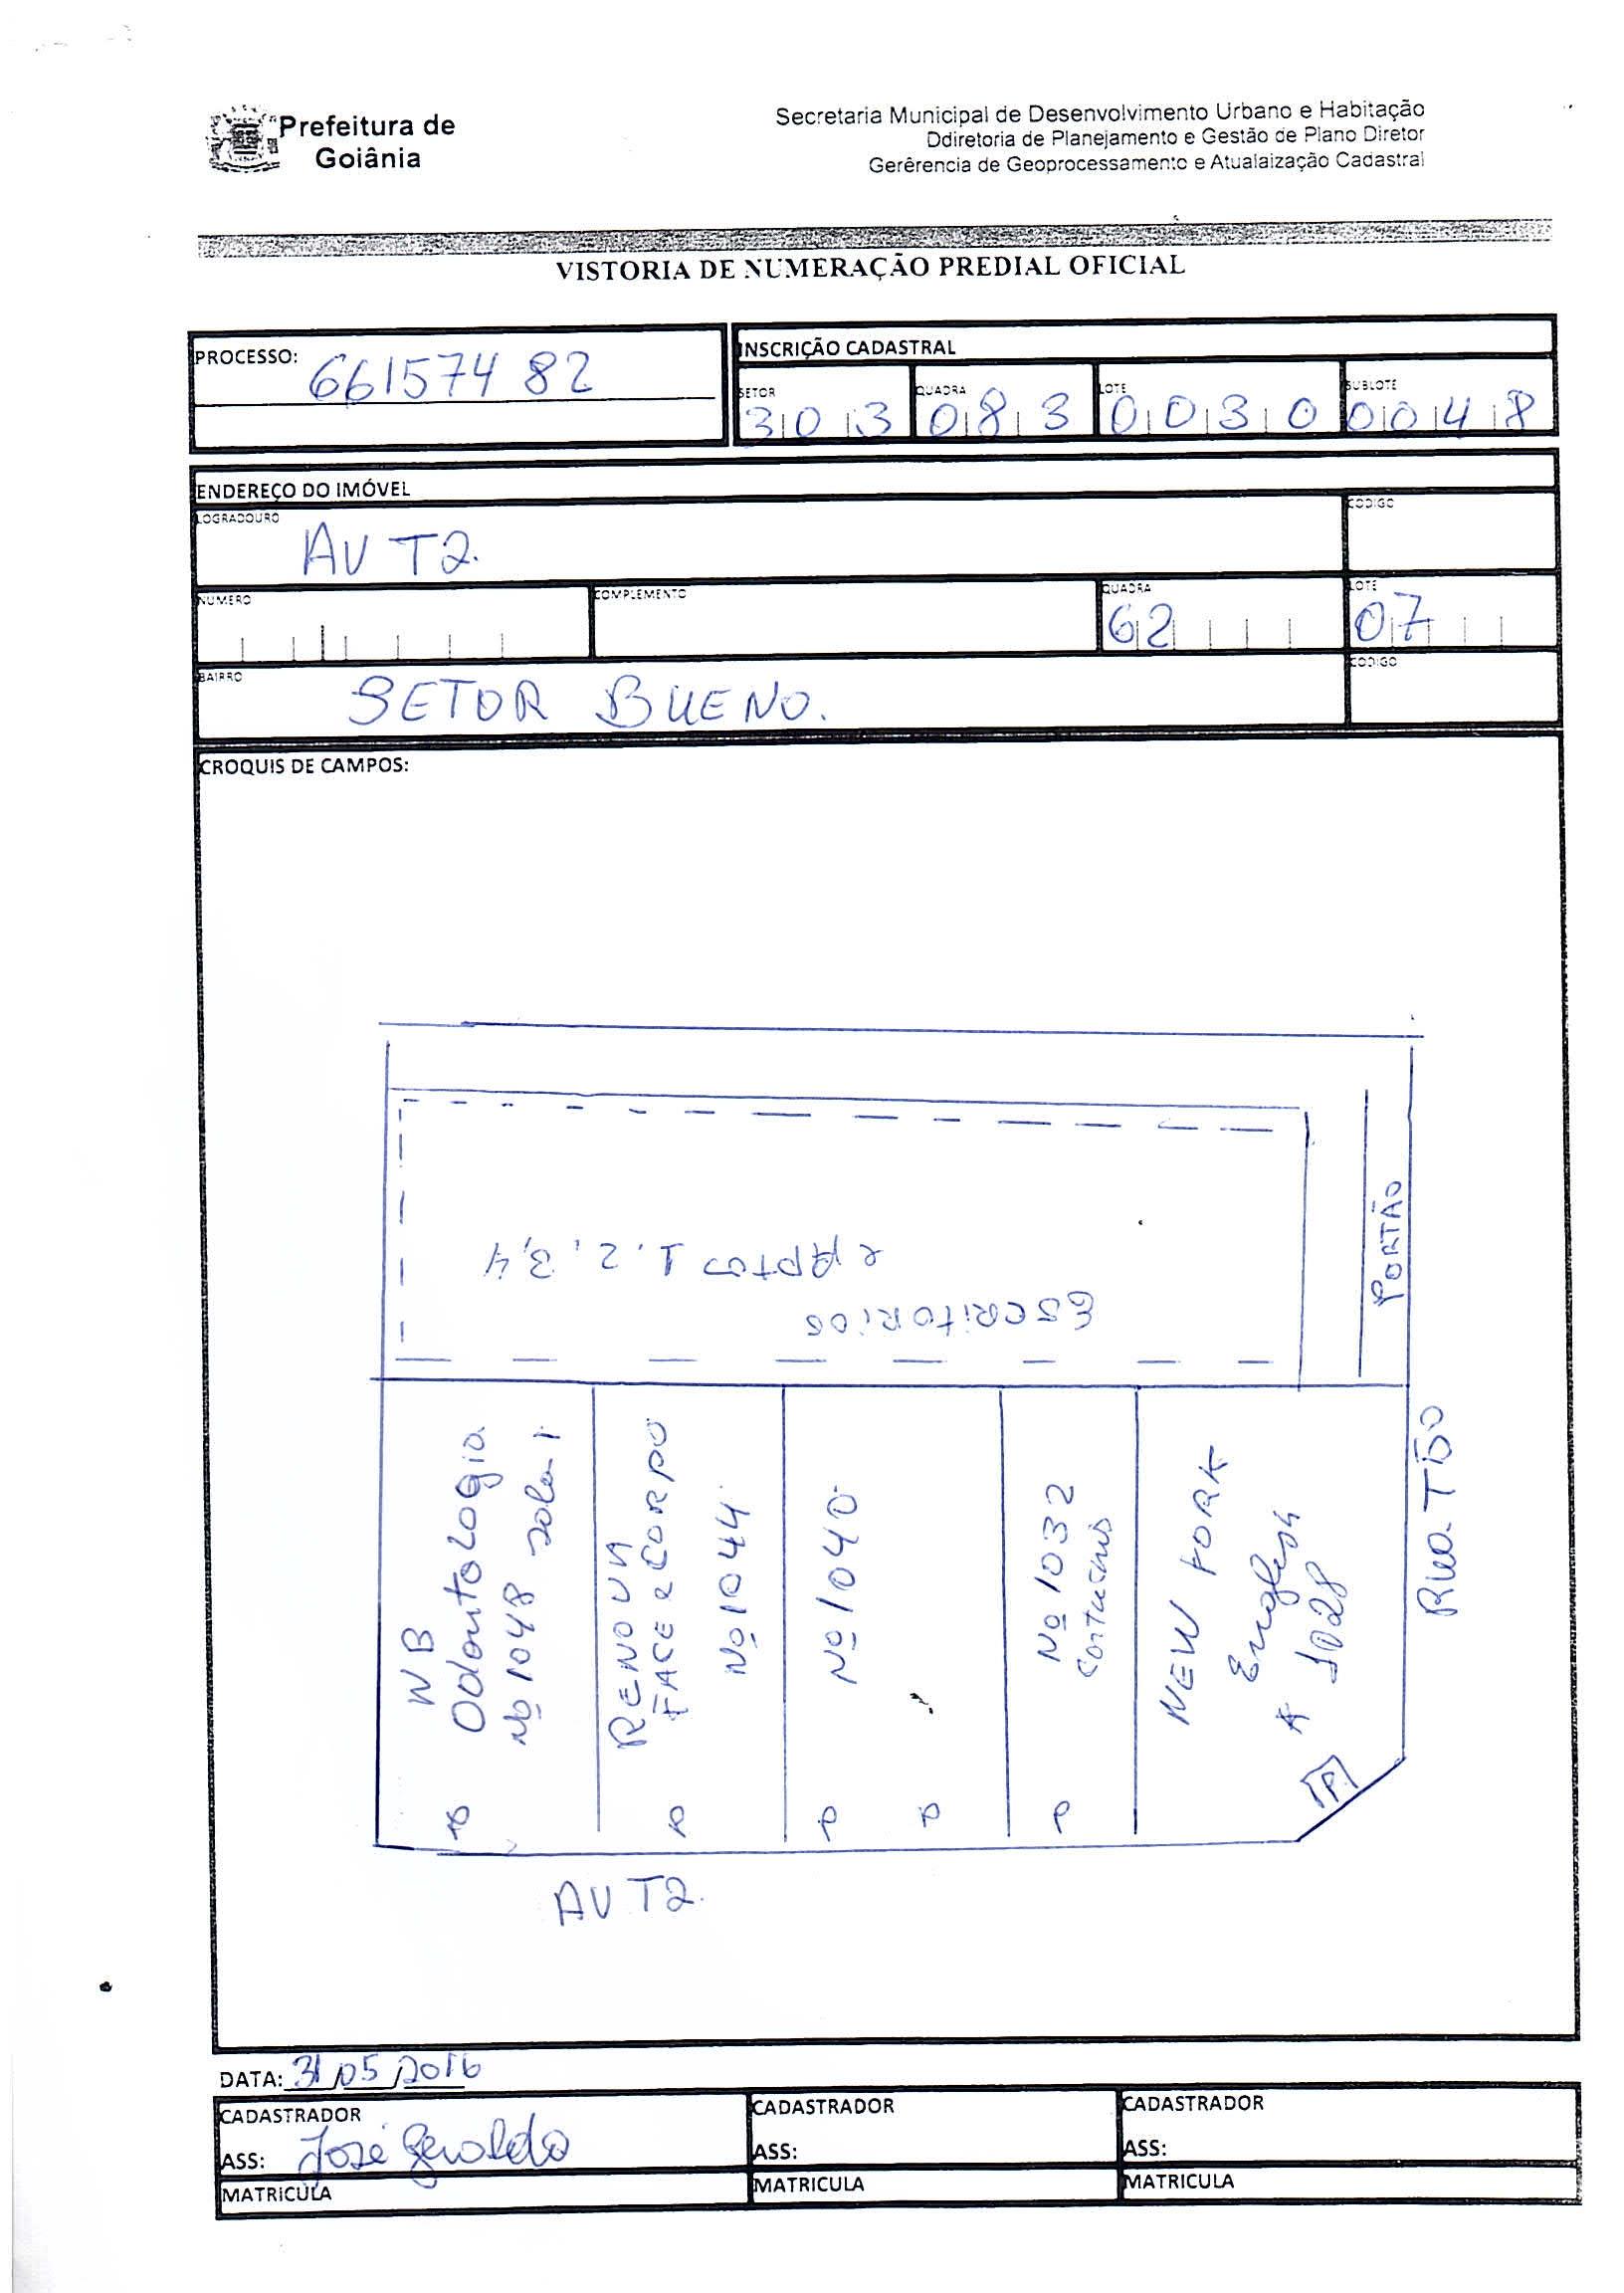 Prefeitura de
Goiânia
Secretaria Municipal de Desenvolvimento Urbano e Habitação
Ddiretoria de Planejamento e Gestão de Plano Diretor
Gerêrencia de Geoprocessamento e Atualaização Cadastral
VISTORIA DE NUMERAÇÃO PREDIAL OFICIAL
PROCESSO: 66157482
INSCRIÇÃO CADASTRAL
SETOR QUADRA LOTE SUBLOTE
303 083 0030 0048
ENDEREÇO DO IMÓVEL
LOGRADOURO CODIGO
AV T2.
NUMERO COMPLEMENTO QUADRA LOTE
62 07
BAIRRO CODIGO
SETOR BUENO.
CROQUIS DE CAMPOS:
ESCRITORIOS
e Aptos 1, 2, 3, 4
PORTÃO
WB
Odontologia
Nº 1048 sala 1
RENOVA
FACE e CORPO
Nº 1044
Nº 1040
Nº 1032
CORTUCHUS
NEW YORK
A 1028
P
P
P
P
P
P
Rua T50
AV T2.
DATA: 31/05/2016
CADASTRADOR CADASTRADOR CADASTRADOR
ASS: José Geraldo ASS: ASS:
MATRICULA MATRICULA MATRICULA